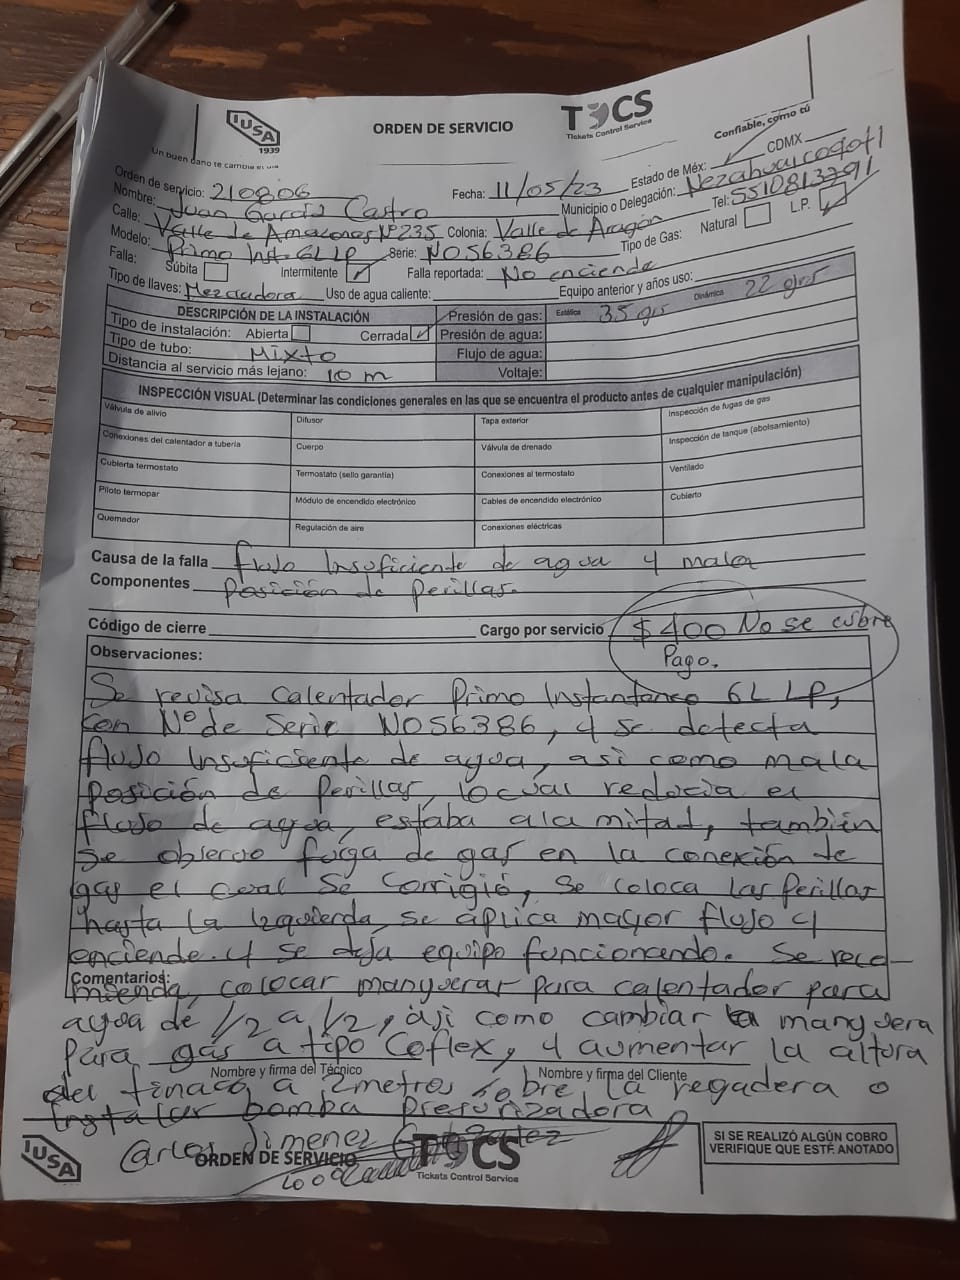 IUSA
1939
Un buen baño te cambia el día
ORDEN DE SERVICIO
TOCS
Tickets Control Service
Confiable, como tú
Orden de servicio: 210806 Fecha: 11/05/23 Estado de Méx: ✓ CDMX
Nombre: Juan García Castro Municipio o Delegación: Nezahualcoyotl
Calle: Valle de Amazonas Nº 235 Colonia: Valle de Aragón Tel: 5510813791
Modelo: Primo Inst. 6L LP Serie: N056386 Tipo de Gas: Natural L.P. ✓
Falla: Súbita Intermitente ✓ Falla reportada: No enciende
Tipo de llaves: Mezcladora Uso de agua caliente: Equipo anterior y años uso:
DESCRIPCIÓN DE LA INSTALACIÓN Presión de gas: Estática 35 grs Dinámica 22 grs
Tipo de instalación: Abierta Cerrada ✓ Presión de agua:
Tipo de tubo: Mixto Flujo de agua:
Distancia al servicio más lejano: 10 m Voltaje:
INSPECCIÓN VISUAL (Determinar las condiciones generales en las que se encuentra el producto antes de cualquier manipulación)
Válvula de alivio Difusor Tapa exterior Inspección de fugas de gas
Conexiones del calentador a tubería Cuerpo Válvula de drenado Inspección de tanque (abolsamiento)
Cubierta termostato Termostato (sello garantía) Conexiones al termostato Ventilado
Piloto termopar Módulo de encendido electrónico Cables de encendido electrónico Cubierto
Quemador Regulación de aire Conexiones eléctricas
Causa de la falla flujo Insuficiente de agua y mala
Componentes posición de perillas.
Código de cierre Cargo por servicio $400 No se cubre
Pago.
Observaciones:
Se revisa calentador Primo Instantaneo 6L LP,
con Nº de Serie N056386, y se detecta
flujo Insuficiente de agua, asi como mala
posición de perillas, lo cual reducia el
flujo de agua, estaba a la mitad, también
se observo fuga de gas en la conexión de
gas el cual se corrigió, se coloca las perillas
hasta la Izquierda, se aplica mayor flujo y
enciende. y se deja equipo funcionando. Se reco-
Comentarios:
mienda, colocar mangueras para calentador para
agua de 1/2 a 1/2, asi como cambiar la manguera
para gas a tipo Coflex, y aumentar la altura
Nombre y firma del Técnico Nombre y firma del Cliente
del tinaco a 2 metros sobre la regadera o
Instalar bomba presurizadora
Carlos Jimenez
IUSA
ORDEN DE SERVICIO
TOCS
Tickets Control Service
SI SE REALIZÓ ALGÚN COBRO
VERIFIQUE QUE ESTÉ ANOTADO